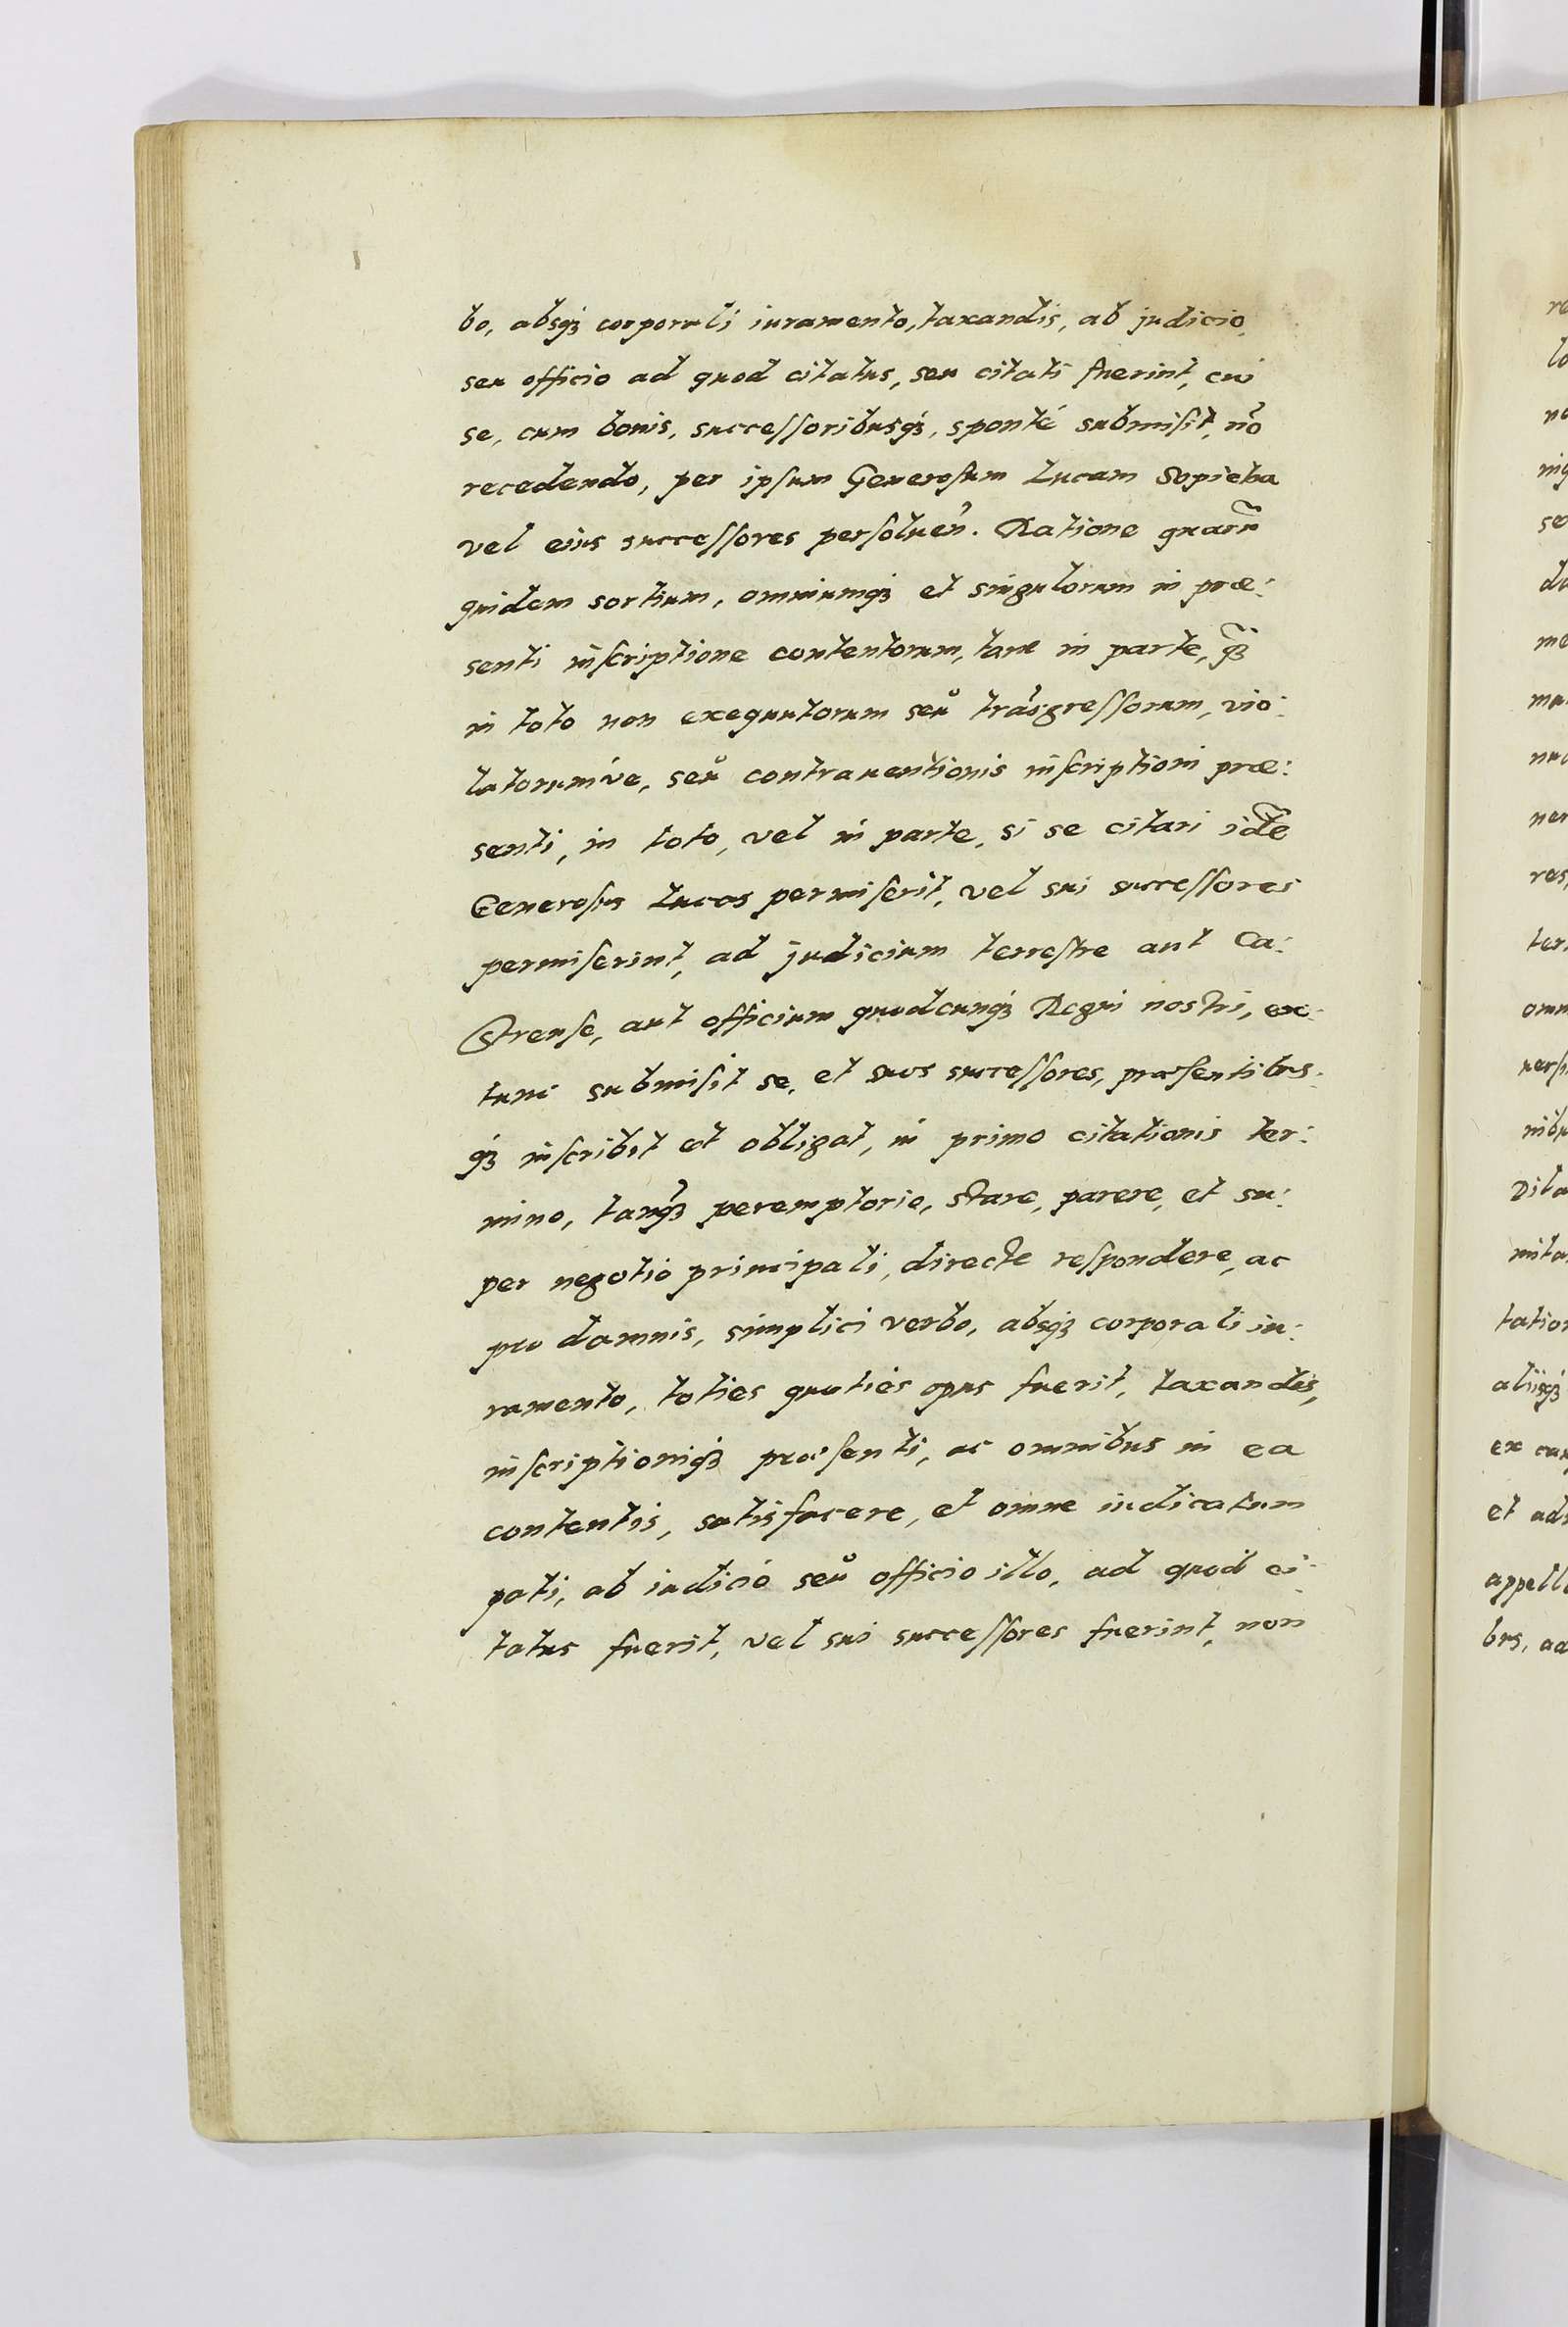 bo, absqȝ corporali iuramento, taxandis, ab judicio,
seu officio ad quod citatus, seu citati fuerint, cui
se, cum bonis, succeſſoribusqȝ, sponté submiſit, nõ
recedendo, per ipſum Generoſum Lucam Sopieha
vel eius succeſſores perſoluen̉. Ratione quarũ
quidem sortium, omniumqȝ et singulorum in præ:
senti inſcriptione contentorum, tam in parte, q̃ȝ
in toto non exequutorum seů trãsgreſſorum, vio:
latorumve, seů contrauentionis inſcriptioni præ:
senti, in toto, vel in parte, si se citari idẽ
Generoſus Lucas permiſerit, vel sui succeſſores
permiſerint, ad judicium terreſtre aut Ca:
ſtrenſe, aut officium quodcunqȝ Regni nostri, ex:
tunc submiſit se, et suos succeſſores, præſentibus:
qȝ inſcribit et obligat, in primo citationis ter:
mino, tanq̃ȝ peremptorie, ſtare, parere, et su:
per negotio principali, directe reſpondere, ac
pro damnis, simplici verbo, absqȝ corporali iu:
ramento, toties quoties opus fuerit, taxandis,
inſcriptioniqȝ præſenti, ac omnibus in ea
contentis, satisfacere, et omne iudicatum
pati, ab iudicio seů officio illo, ad quod ci:
tatus fuerit, vel sui succeſſores fuerint, non